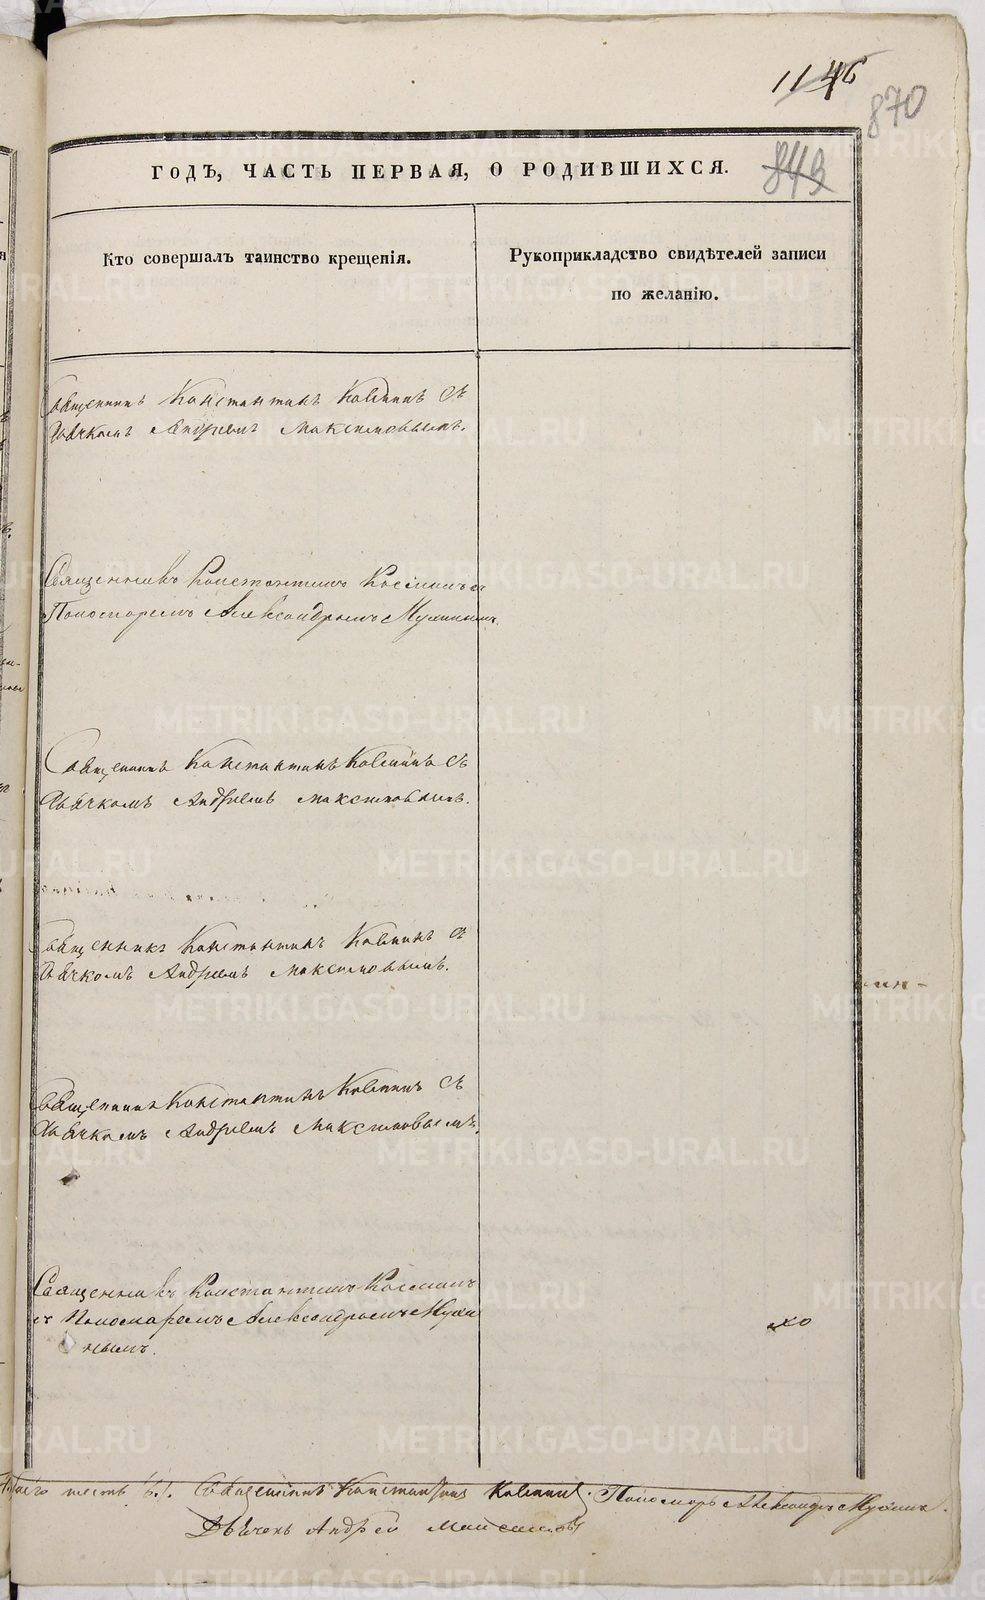 1146
870
849
ГОДЪ, ЧАСТЬ ПЕРВАЯ, О РОДИВШИХСЯ.
Кто совершалъ таинство крещенія.
Рукоприкладство свидѣтелей записи
по желанію.
Священникъ Константинъ Косминъ съ
Дьячкомъ Андреемъ Максимовымъ.
Священникъ Константинъ Косминъ съ
Пономаремъ Александромъ Мухинымъ.
Священникъ Константинъ Косминъ съ
Дьячкомъ Андреемъ Максимовымъ.
Священникъ Константинъ Косминъ съ
Дьячкомъ Андреемъ Максимовымъ.
Священникъ Константинъ Косминъ съ
Дьячкомъ Андреемъ Максимовымъ.
Священникъ Константинъ Косминъ
съ Пономаремъ Александромъ Мухи
нымъ.
шесть /6./. Священникъ Константинъ Косминъ. Пономарь Александръ Мухинъ.
Дьячекъ Андрей Максимовъ
METRIKI.GASO-URAL.RU